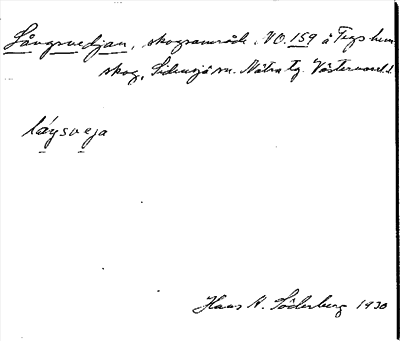 Långsvedjan, skogsområde. VO. 159 å Tegs hem
skog, Sidensjö sn. Nätra tg. Västernorrl. l.
låŋsveja
Hans A. Söderberg 1930